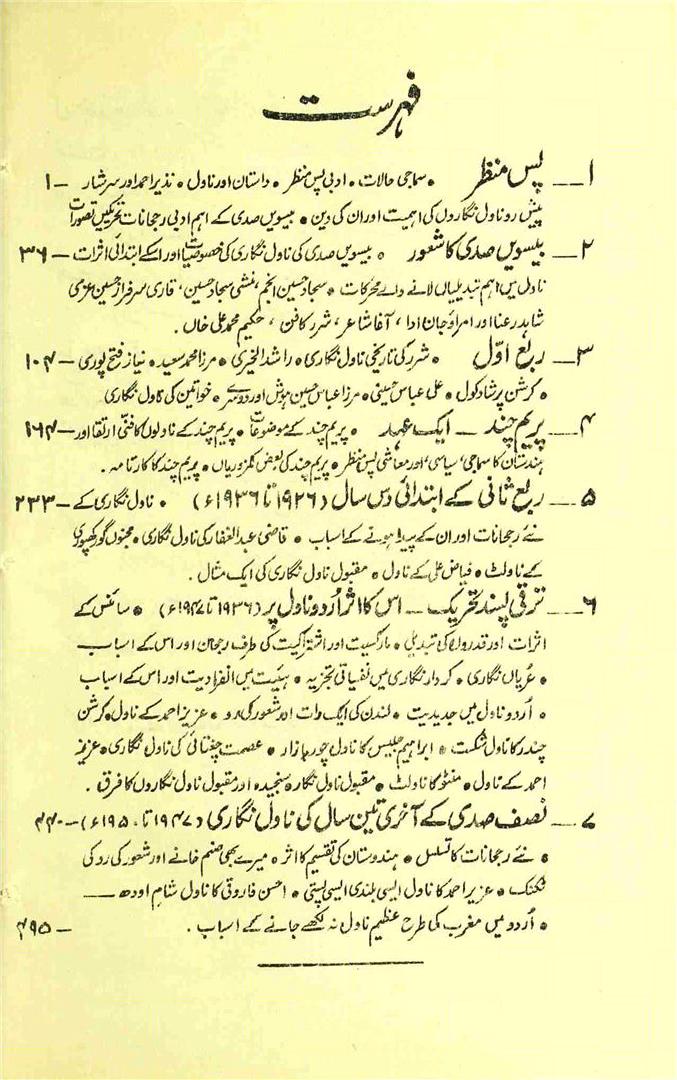 فہرست
۱ــ پس منظر • سماجی حالات • ادبی پس منظر • داستان اور ناول • نذیر احمد اور سرشار ــ ۱
پیش رو ناول نگاروں کی اہمیت اور ان کی دین • بیسویں صدی کے اہم ادبی رجحانات تحریکیں تصورات
۲ــ بیسویں صدی کا شعور • بیسویں صدی کی ناول نگاری کی خصوصیات اور اسکے ابتدائی اثرات ــ ۳۶
ناول میں اہم تبدیلیاں لانے والے محرکات • سجاد حسین انجم، منشی سجاد حسین، قاری سرفراز حسین عزمی
شاہد رعنا اور امراؤ جان ادا، آغا شاعر، شرر کا فن، حکیم محمد علی خاں .
۳ــ ربع اوّل • شرر کی تاریخی ناول نگاری • راشد الخیری • مرزا محمد سعید • نیاز فتح پوری ــ ۱۰۴
• کرشن پرشاد کول • علی عباس حسینی • مرزا عباس حسین ہوش اور دوسرے • خواتین کی ناول نگاری
۴ــ پریم چند ــ ایک عہد • پریم چند کے موضوعات • پریم چند کے ناولوں کا فنی ارتقا اور ــ ۱۶۴
ہندستان کا سماجی، سیاسی، اور معاشی پس منظر • پریم چند کی بعض کمزوریاں • پریم چند کا کارنامہ .
۵ــ ربع ثانی کے ابتدائی دس سال (۱۹۲۶ تا ۱۹۳۶ء) • ناول نگاری کے ــ ۲۳۳
نئے رجحانات اور ان کے پیدا ہونے کے اسباب • قاضی عبد الغفار کی ناول نگاری • مجنوں گورکھپوری
کے ناولٹ • فیاض علی کے ناول • مقبول ناول نگاری کی ایک مثال .
۶ــ ترقی پسند تحریک ــ اس کا اثر اُردو ناول پر (۱۹۳۶ تا ۱۹۴۷ء) • سائنس کے
اثرات اور قدروں کی تبدیلی • مارکسیت اور اشتراکیت کی طرف رجحان اور اس کے اسباب
• عریاں نگاری • کردار نگاری میں نفسیاتی تجزیہ • ہیئت میں انفرادیت اور اس کے اسباب
• اُردو ناول میں جدیدیت • لندن کی ایک رات اور شعور کی رو • عزیز احمد کے ناول • کرشن
چندر کا ناول شکست • ابراہیم جلیس کا ناول چور بازار • عصمت چغتائی کی ناول نگاری • عزیز
احمد کے ناول • منٹو کا ناولٹ • مقبول ناول نگار • سنجیدہ اور مقبول ناول نگاروں کا فرق .
۷ــ نصف صدی کے آخری تین سال کی ناول نگاری (۱۹۴۷ تا ۱۹۵۰ء) ــ ۴۴۰
• نئے رجحانات کا تسلسل • ہندوستان کی تقسیم کا اثر • میرے بھی صنم خانے اور شعور کی رو کی
تکنک • عزیز احمد کا ناول ایسی بلندی ایسی پستی • احسن فاروقی کا ناول شام اودھ ــ
• اُردو میں مغرب کی طرح عظیم ناول نہ لکھے جانے کے اسباب . ــ ۴۹۵